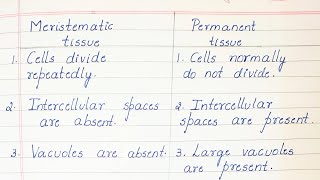 Meristematic tissue
Permanent tissue
1. Cells divide repeatedly.
1. Cells normally do not divide.
2. Intercellular spaces are absent.
2. Intercellular spaces are present.
3. Vacuoles are absent.
3. Large vacuoles are present.